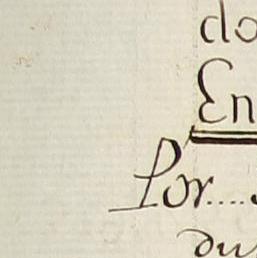 do
En
Por....
du